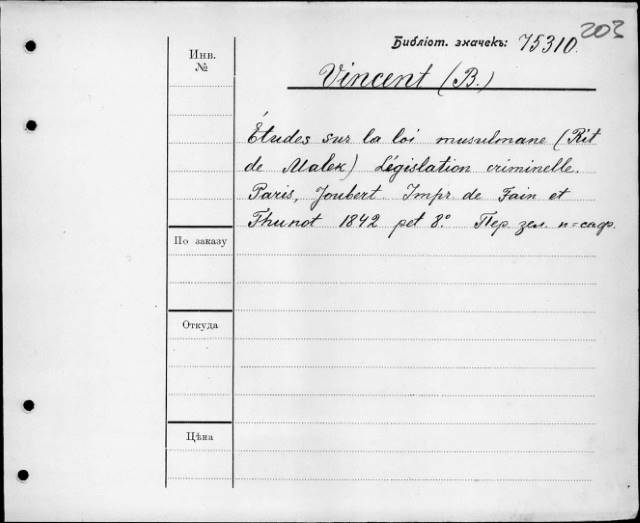 203
Библіот. значекъ: 75310.
Инв.
№
Vincent (B.)
Études sur la loi musulmane (Rit
de Malek) Législation criminelle.
Paris, Joubert. Impr. de Fain et
Thunot 1842 pet 8.° Пер. зел. п=саф.
По заказу
Откуда
Цѣна